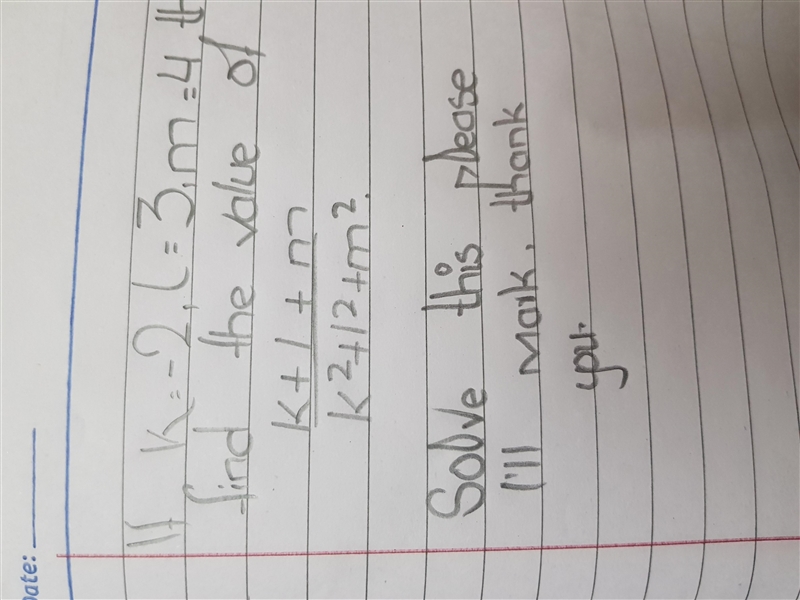 Date:
If k=-2, l=3, m=4 th
find the value of
k+l+m
k²+l²+m².
Solve this please
I'll Mark, thank
you.